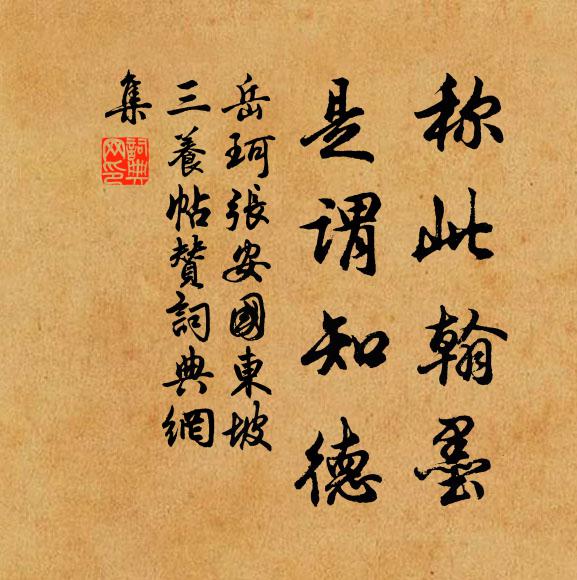 称此翰墨
是谓知德
岳珂張安國東坡
三養帖贊詞典網
集
詞典網印